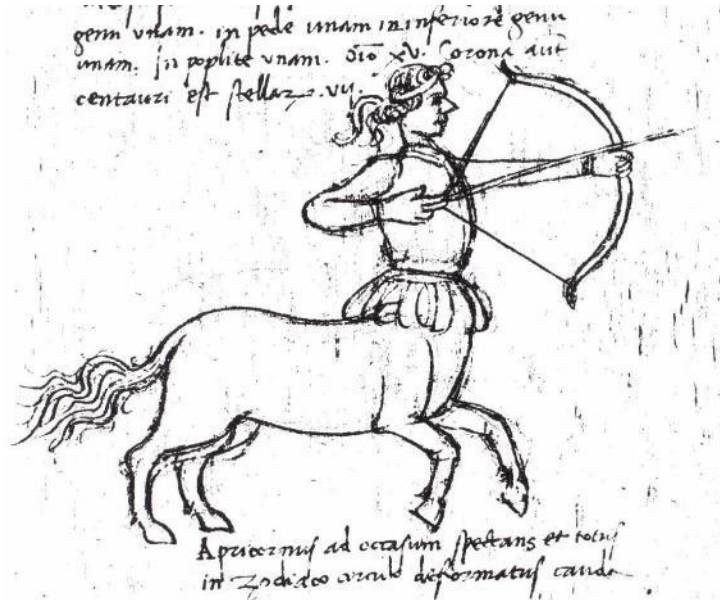 genu vnam. in pede vnam in inferiore genu
vnam. in poplite vnam. Oīo xv. Corona aūt
centauri est stellaꝝ. vii.
Apricornus ad occasum spectans et totus
in Zodiaco circulo deformatus cauda